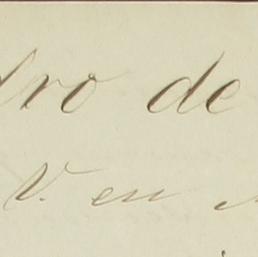 tro de
V. en